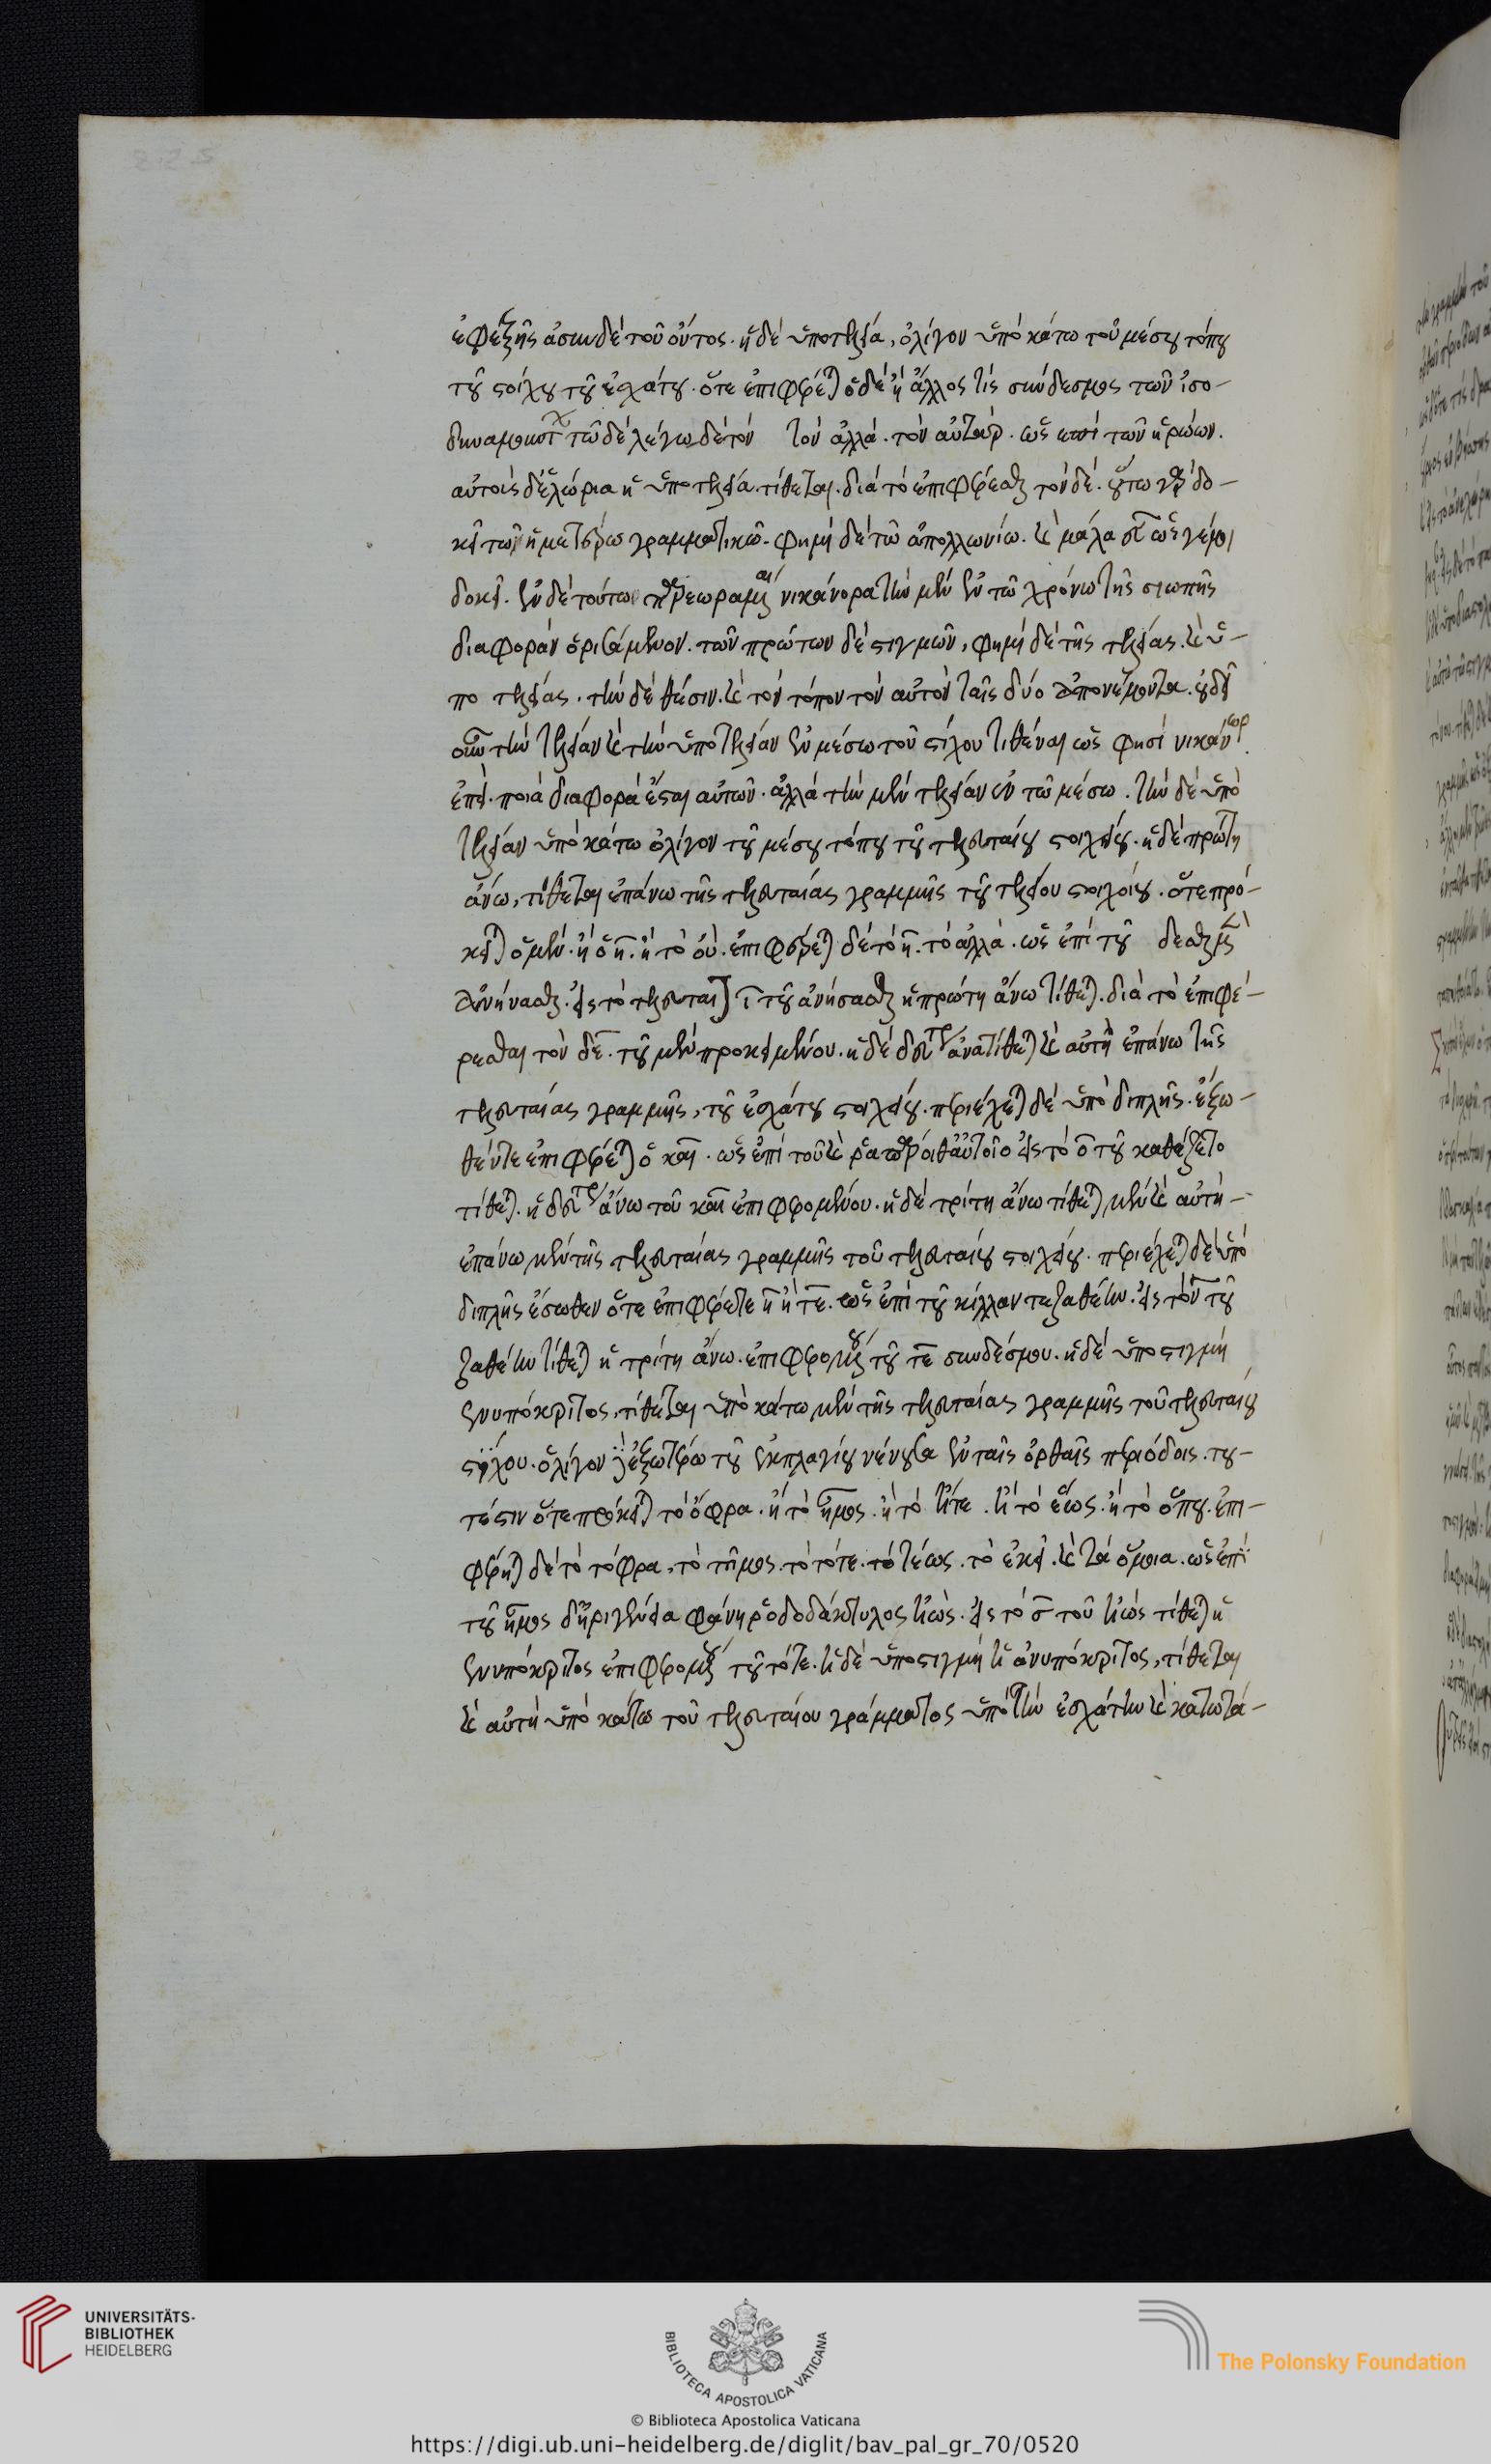 ἐφεξῆς ἀσυνδέτου ὄντος. ἡ δὲ ὑποτελεία, ὀλίγον ὑποκάτω τοῦ μέσου τόπου
τοῦ στοίχου τοῦ ἐσχάτου. ὅτε ἐπιφέρεται ὁ δὲ ἢ ἄλλος τις σύνδεσμος τῶν ἰσο-
τῷ δὲ λέγω δὲ τὸν τὸν ἀλλὰ. τὸν αὐτὰρ. ὡς ἐπὶ τῶν ἡρώων.
αὐτοὶς δὲ ἑλώρια ἡ ὑποτελεία τίθεται. διὰ τὸ ἐπιφέρεσθαι τὸν δέ. οὕτω γὰρ δο-
κεῖ τῷ ἡμετέρῳ γραμματικῷ. φημὶ δὲ τῷ ἀπολλωνίῳ. καὶ μάλα ὡς γέμοι
δοκεῖ. ἐν δὲ τούτω νικάνορα τὴν μὲν ἐν τῷ χρόνω τῆς σιωπῆς
διαφορὰν ὁρισάμενον. τῶν πρώτων δὲ στιγμῶν, φημὶ δὲ τῆς τελείας. καὶ ὑ-
πο τελείας. τὴν δὲ θέσιν. καὶ τὸν τόπον τὸν αὐτὸν ταῖς δύο ἀπονείμοντα. οὐ δεῖ
οὖν τὴν τελείαν καὶ τὴν ὑποτελείαν ἐν μέσω τοῦ στίχου τιθέναι ὡς φησὶ νικάνωρ.
ἐπεὶ. ποιὰ διαφορὰ ἔσται αὐτῶν. ἀλλὰ τὴν μὲν τελείαν ἐν τῷ μέσω. τὴν δὲ ὑπὸ
τελείαν ὑποκάτω ὀλίγον τοῦ μέσου τόπου τοῦ τελευταίου στοιχείου. ἡ δὲ πρώτη
ἄνω, τίθεται ἐπάνω τῆς τελευταίας γραμμῆς τοῦ τελείου στοιχείου. ὅτε πρό-
κειται ὁ μὲν. ἢ ὁ η. ἢ τὸ οὐ. ἐπιφέρεται δὲ τὸ η. τὸ ἀλλὰ. ὡς ἐπὶ τοῦ
εἰς τὸ τελευταῖον ι τοῦ ἡ πρώτη ἄνω τίθεται. διὰ τὸ ἐπιφέ-
ρεσθαι τὸν δὲ. τοῦ μὲν προκειμένου. ἡ δὲ δευτέρα ἄνω τίθεται καὶ αὐτὴ ἐπάνω τῆς
τελευταίας γραμμῆς, τοῦ ἐσχάτου στοιχείου. περιέχεται δὲ ὑπὸ διπλῆς. ἔξω-
θεν ὅτε ἐπιφέρεται ὁ καὶ. ὡς ἐπὶ τοῦ καὶ ῥα πάροιθ' αὐτοῖο εἰς τὸ ο τοῦ καθέζετο
τίθεται. ἡ δευτέρα ἄνω τοῦ καὶ ἐπιφερομένου. ἡ δὲ τρίτη ἄνω τίθεται μὲν καὶ αὐτὴ-
ἐπάνω μὲν τῆς τελευταίας γραμμῆς τοῦ τελευταίου στοιχείου. περιέχεται δὲ ὑπὸ
διπλῆς ἔσωθεν ὅτε ἐπιφέρεται ἢ τε. ὡς ἐπὶ τοῦ κίλλαν τε ζαθέην. εἰς τὸ ν τοῦ
ζαθέην τίθεται ἡ τρίτη ἄνω. ἐπιφερομένου τοῦ τε συνδέσμου. ἡ δὲ ὑποστιγμὴ
ἐνυπόκριτος, τίθεται ὑποκάτω μὲν τῆς τελευταίας γραμμῆς τοῦ τελευταίου
στίχου. ὀλίγον ἐξωτέρω τοῦ ἐκπλαγίου νένουσα ἐν ταῖς ὀρθαῖς περιόδοις. του-
τέστιν ὅτε πρόκειται τὸ ὄφρα. ἢ τὸ ἦμος. ἢ τὸ ὅτε. ἢ τὸ ἕως. ἢ τὸ ὅπου. ἐπι-
φέρηται δὲ τὸ τόφρα, τὸ τῆμος. τὸ τότε. τὸ τέως. τὸ ἐκεῖ. καὶ τὰ ὅμοια. ὡς ἐπὶ
τοῦ ἦμος δ' ἠριγένεια φάνη ῥοδοδάκτυλος ἠώς. εἰς τὸ σ τοῦ ἠώς τίθεται ἡ
ἐνυπόκριτος ἐπιφερομένου τοῦ τότε. ἡ δὲ ὑποστιγμὴ ἡ ἀνυπόκριτος, τίθεται
καὶ αὐτὴ ὑποκάτω τοῦ τελευταίου γράμματος ὑπὸ τὴν ἐσχάτην καὶ κατωτά-
UNIVERSITÄTS-
BIBLIOTHEK
HEIDELBERG
BIBLIOTECA APOSTOLICA VATICANA
The Polonsky Foundation
© Biblioteca Apostolica Vaticana
https://digi.ub.uni-heidelberg.de/diglit/bav_pal_gr_70/0520